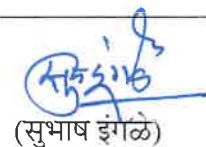 (सुभाष इंगळे)